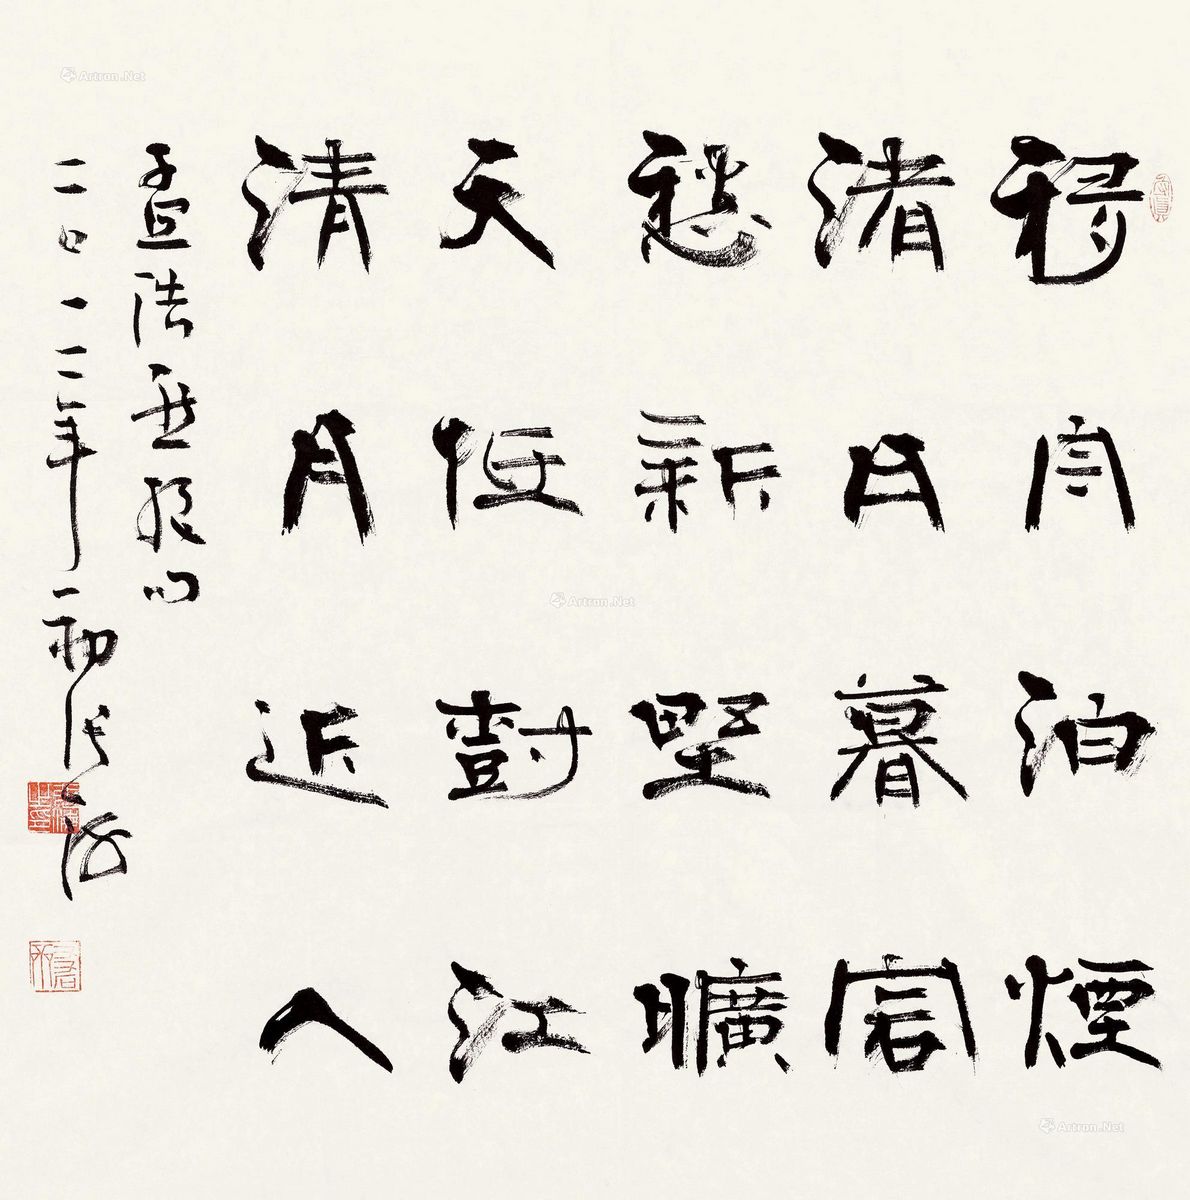 移舟泊煙
渚日暮客
愁新野曠
天低樹江
清月近人
孟浩然
二〇一二年初張海
Artron.Net
Artron.Net
Artron.Net